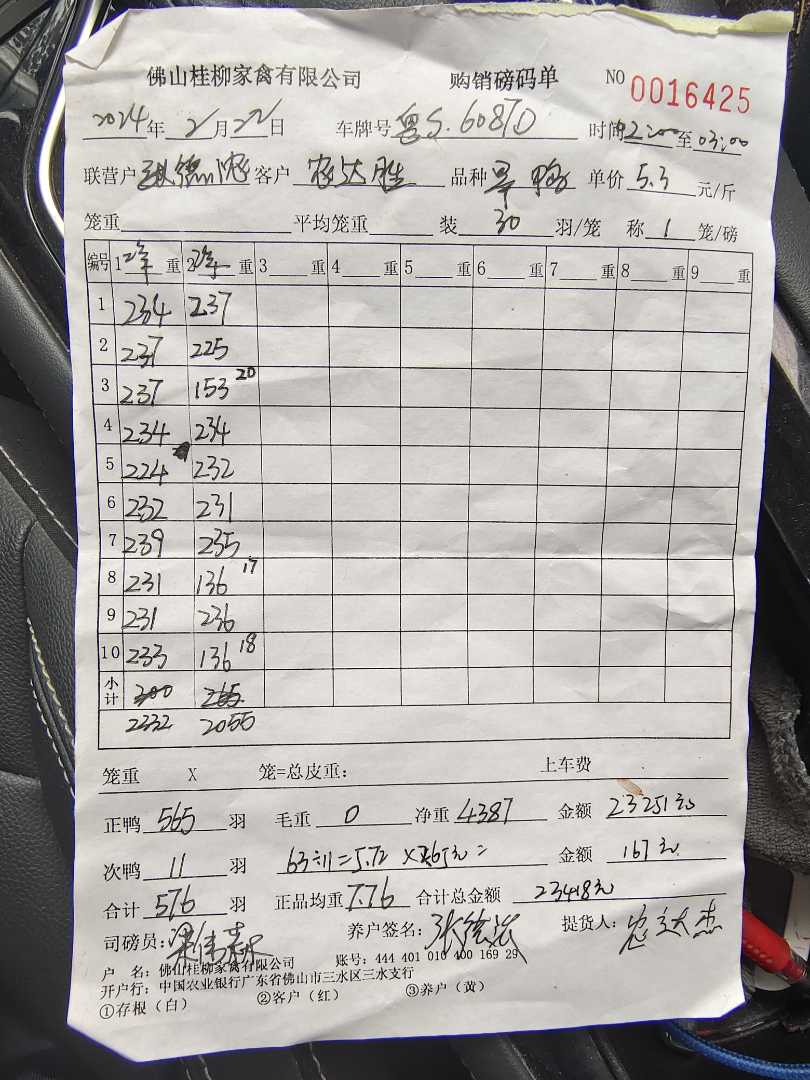 佛山桂柳家禽有限公司 购销磅码单 NO 0016425
2024年 2月 22日 车牌号 粤S.6087D 时间 2:00 至 03:00
联营户 客户 农达胜 品种 旱鸭 单价 5.3 元/斤
笼重 平均笼重 装 30 羽/笼 称 1 笼/磅
编号 1 净 重 2 净 重 3 重 4 重 5 重 6 重 7 重 8 重 9 重
1 234 237
2 237 225
3 237 153 20
4 234 234
5 224 232
6 232 231
7 239 235
8 231 136 17
9 231 236
10 233 136 18
小计 300 265
2332 2055
笼重 X 笼=总皮重: 上车费
正鸭 565 羽 毛重 0 净重 4387 金额 23251元
次鸭 11 羽 63÷11=5.72 ×2.65元= 金额 167元
合计 576 羽 正品均重 7.76 合计总金额 23418元
司磅员: 养户签名: 提货人:
户 名: 佛山桂柳家禽有限公司 账号: 444 401 010 400 169 29
开户行: 中国农业银行广东省佛山市三水区三水支行
①存根（白） ②客户（红） ③养户（黄）